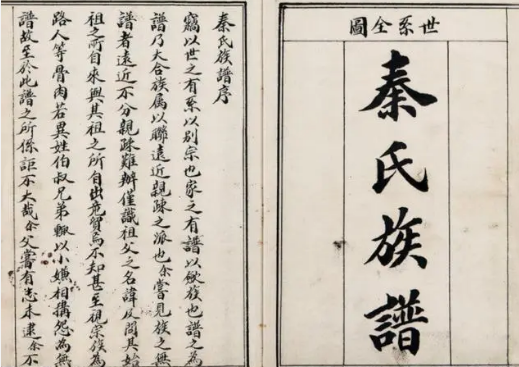 世系全圖
秦氏族譜
秦氏族譜序
竊以世之有系以别宗也家之有譜以歛族也譜之為
譜乃大合族属以聯遠近親疎之派也余嘗見族之無
譜者遠近不分親疎難辦僅識祖父之名諱及問其始
祖之所自來與其祖之所自出竟貿焉不知甚至祖宗族為
路人等骨肉若異姓伯叔兄弟輙以小嫌相搆怨為無
譜故至於此譜之所係詎不大哉余父嘗有志未逮余不